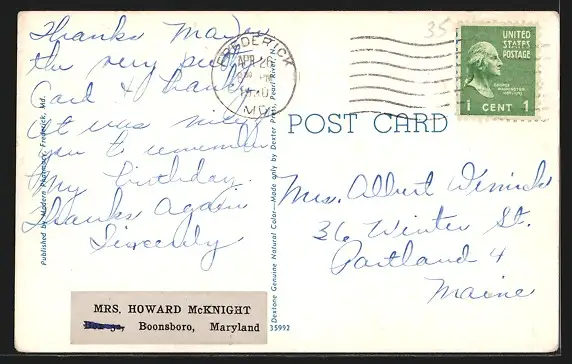 Thanks Mary
the very sweet
Card & hanky
it was nice of
you to remember
my birthday.
Thanks again
Sincerely
MRS. HOWARD McKNIGHT
Boonsboro, Maryland
Published by Modern Pharmacy, Frederick, Md.
Dextone Genuine Natural Color—Made only by Dexter Press, Pearl River, N.Y.
35992
FREDERICK
APR 26
MD.
35
UNITED
STATES
POSTAGE
GEORGE
WASHINGTON
1 CENT 1
POST CARD
Mrs. Albert
36 Winter St.
Portland 4
Maine